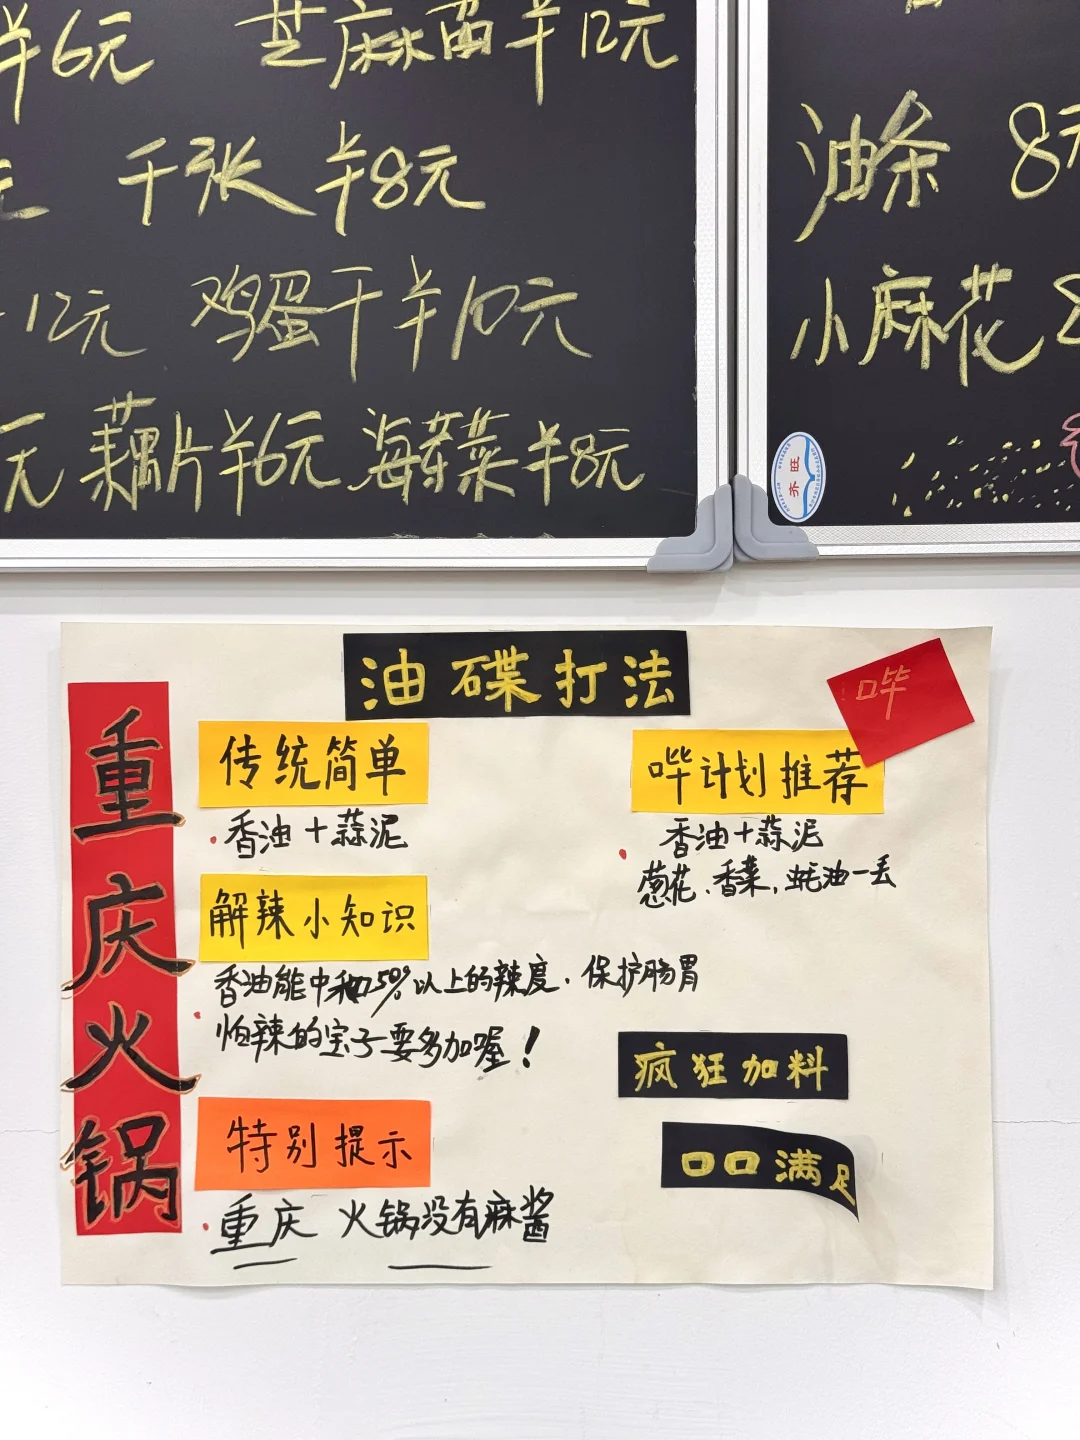 羊6元 芝麻苗羊12元
元 千张 羊8元
12元 鸡蛋干羊10元
元 藕片羊6元 海茸菜羊8元
油条 8元
小麻花 8
齐旺
油碟打法
哔
重庆火锅
传统简单
香油+蒜泥
解辣小知识
香油能中和50%以上的辣度.保护肠胃
怕辣的宝子要多加喔!
特别提示
重庆 火锅没有麻酱
哔计划推荐
香油+蒜泥
葱花、香菜,蚝油一丢
疯狂加料
口口满足